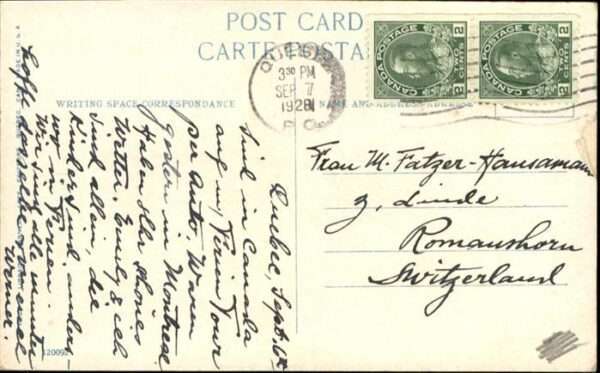 POST CARD
CARTE POSTA
CANADA POSTAGE
2 CENTS 2
CANADA POSTAGE
2 CENTS 2
QUEBEC
3 30 PM
SEP 7
1928
P.Q.
WRITING SPACE CORRESPONDANCE
NAME AND ADDRESS
Quebec, Sept. 6th
Sind in Canada
auf in Tour
per Auto. Waren
gestern in Montreal
Haben sehr schönes
Wetter. Emily & ich
sind allein, die
Kinder sind anders
wo in Ferien.
Wir sind alle munter
hoffe dasselbe von euch
Werner.
Frau M. Fatzer-Hausamann
z. Linde
Romanshorn
Switzerland
120092